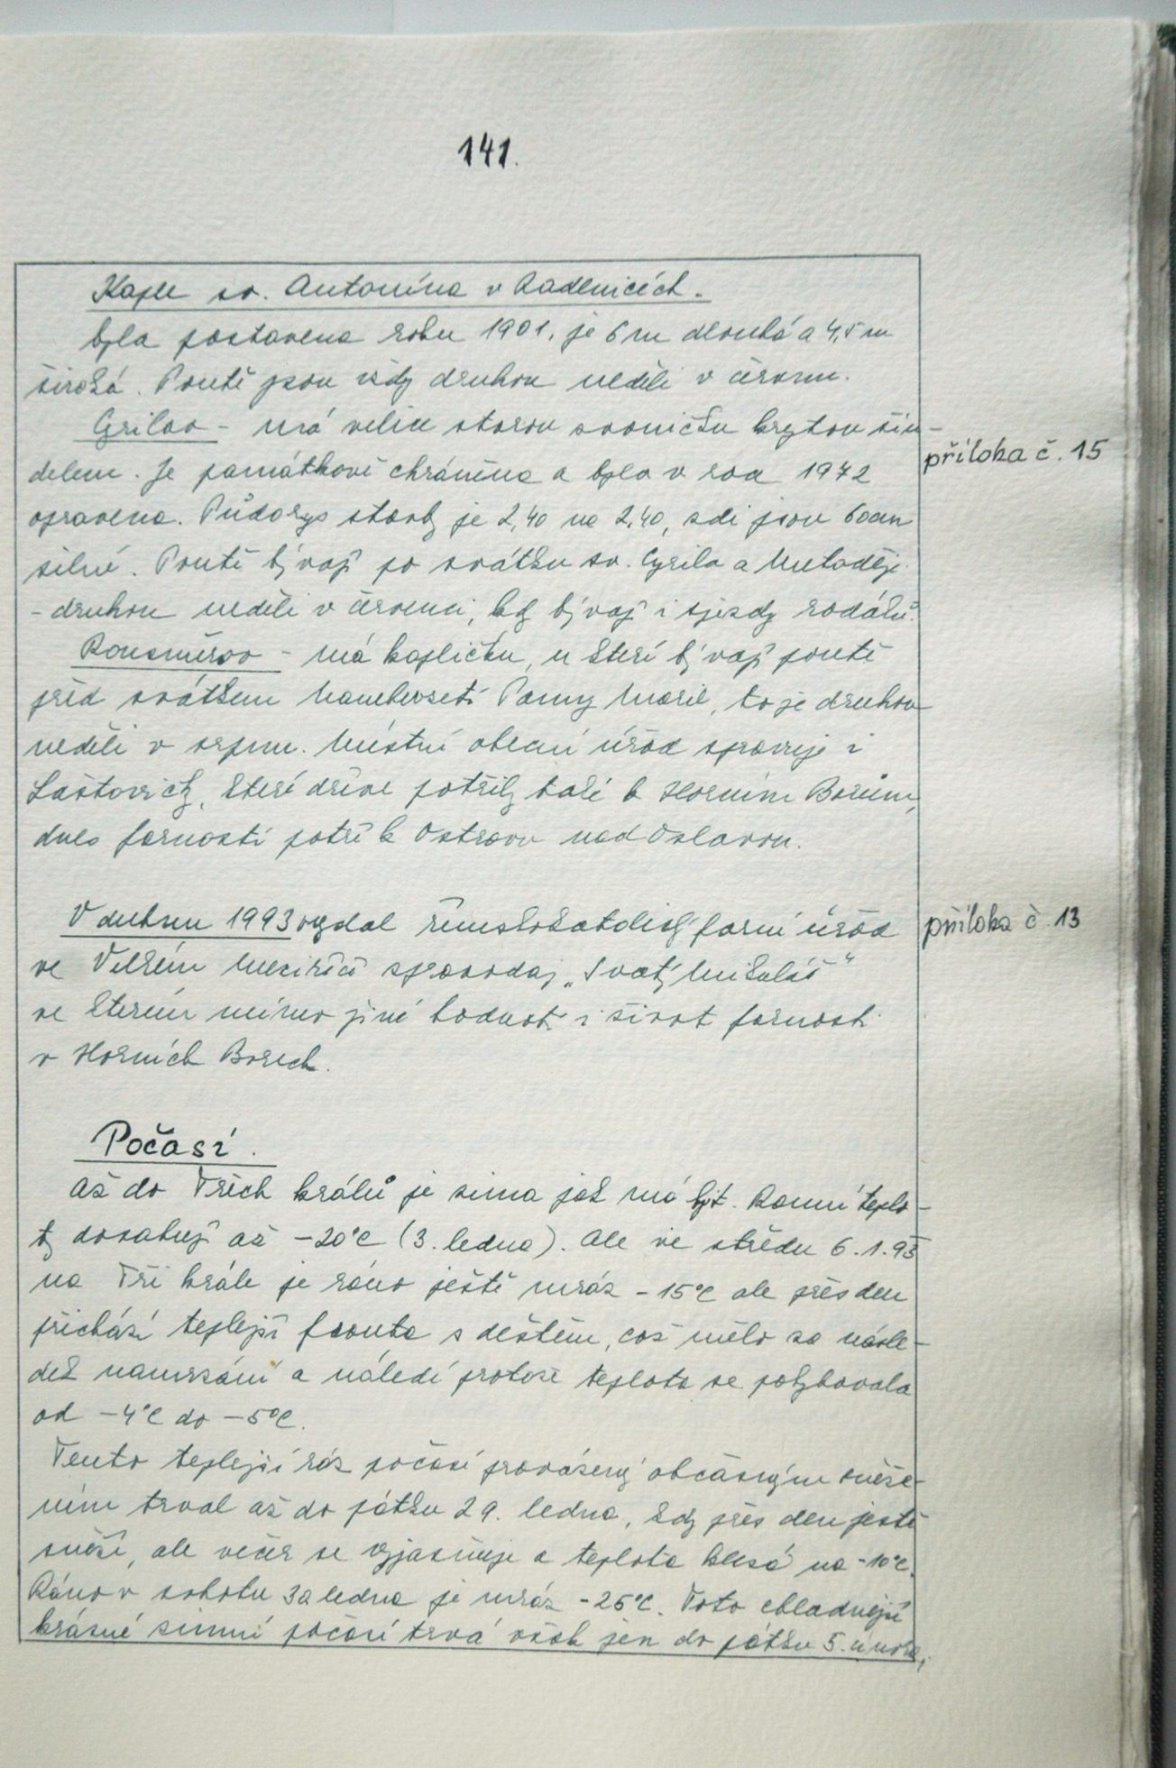 141.
Kaple sv. Antonína v Radenicích.
byla postavena roku 1901, je 6 m dlouhá a 4,5 m
široká. Poutě jsou vždy druhou neděli v červnu.
Cyrilov - má velice starou zvoničku krytou šin-
příloha č. 15
delem. Je památkově chráněna a byla v roce 1972
opravena. Půdorys stavby je 2,40 na 2,40, zdi jsou 60cm
silné. Poutě bývají po svátku sv. Cyrila a Metoděje
- druhou neděli v červenci, kdy bývají i sjezdy rodáků.
Rousměrov - má kapličku, u které bývají poutě
před svátkem Nanebevzetí Panny Marie, to je druhou
neděli v srpnu. Místní obecní úřad spravuje i
Laštovičky, které dříve patřily také k Horním Borům,
dnes farností patří k Ostrovu nad Oslavou.
V dubnu 1993 vydal římskokatolický farní úřad
příloha č. 13
ve Velkém Meziříčí zpravodaj „Svatý Mikuláš“
ve kterém mimo jiné hodnotí i život farnosti
v Horních Borech.
Počasí.
Až do Tří králů je zima jak má být. Ranní teplo-
ty dosahují až -20°C (3. ledna). Ale ve středu 6.1.93
na Tři krále je ráno ještě mráz -15°C ale přes den
přichází teplejší fronta s deštěm, což mělo za násle-
dek namrzání a náledí protože teplota se pohybovala
od -4°C do -5°C.
Tento teplejší ráz počasí provázený občasným sněže-
ním trval až do pátku 29. ledna, kdy přes den ještě
sněží, ale večer se vyjasňuje a teplota klesá na -10°C.
Ráno v sobotu 30 ledna je mráz -25°C. Toto chladnější
krásné zimní počasí trvá však jen do pátku 5. února,